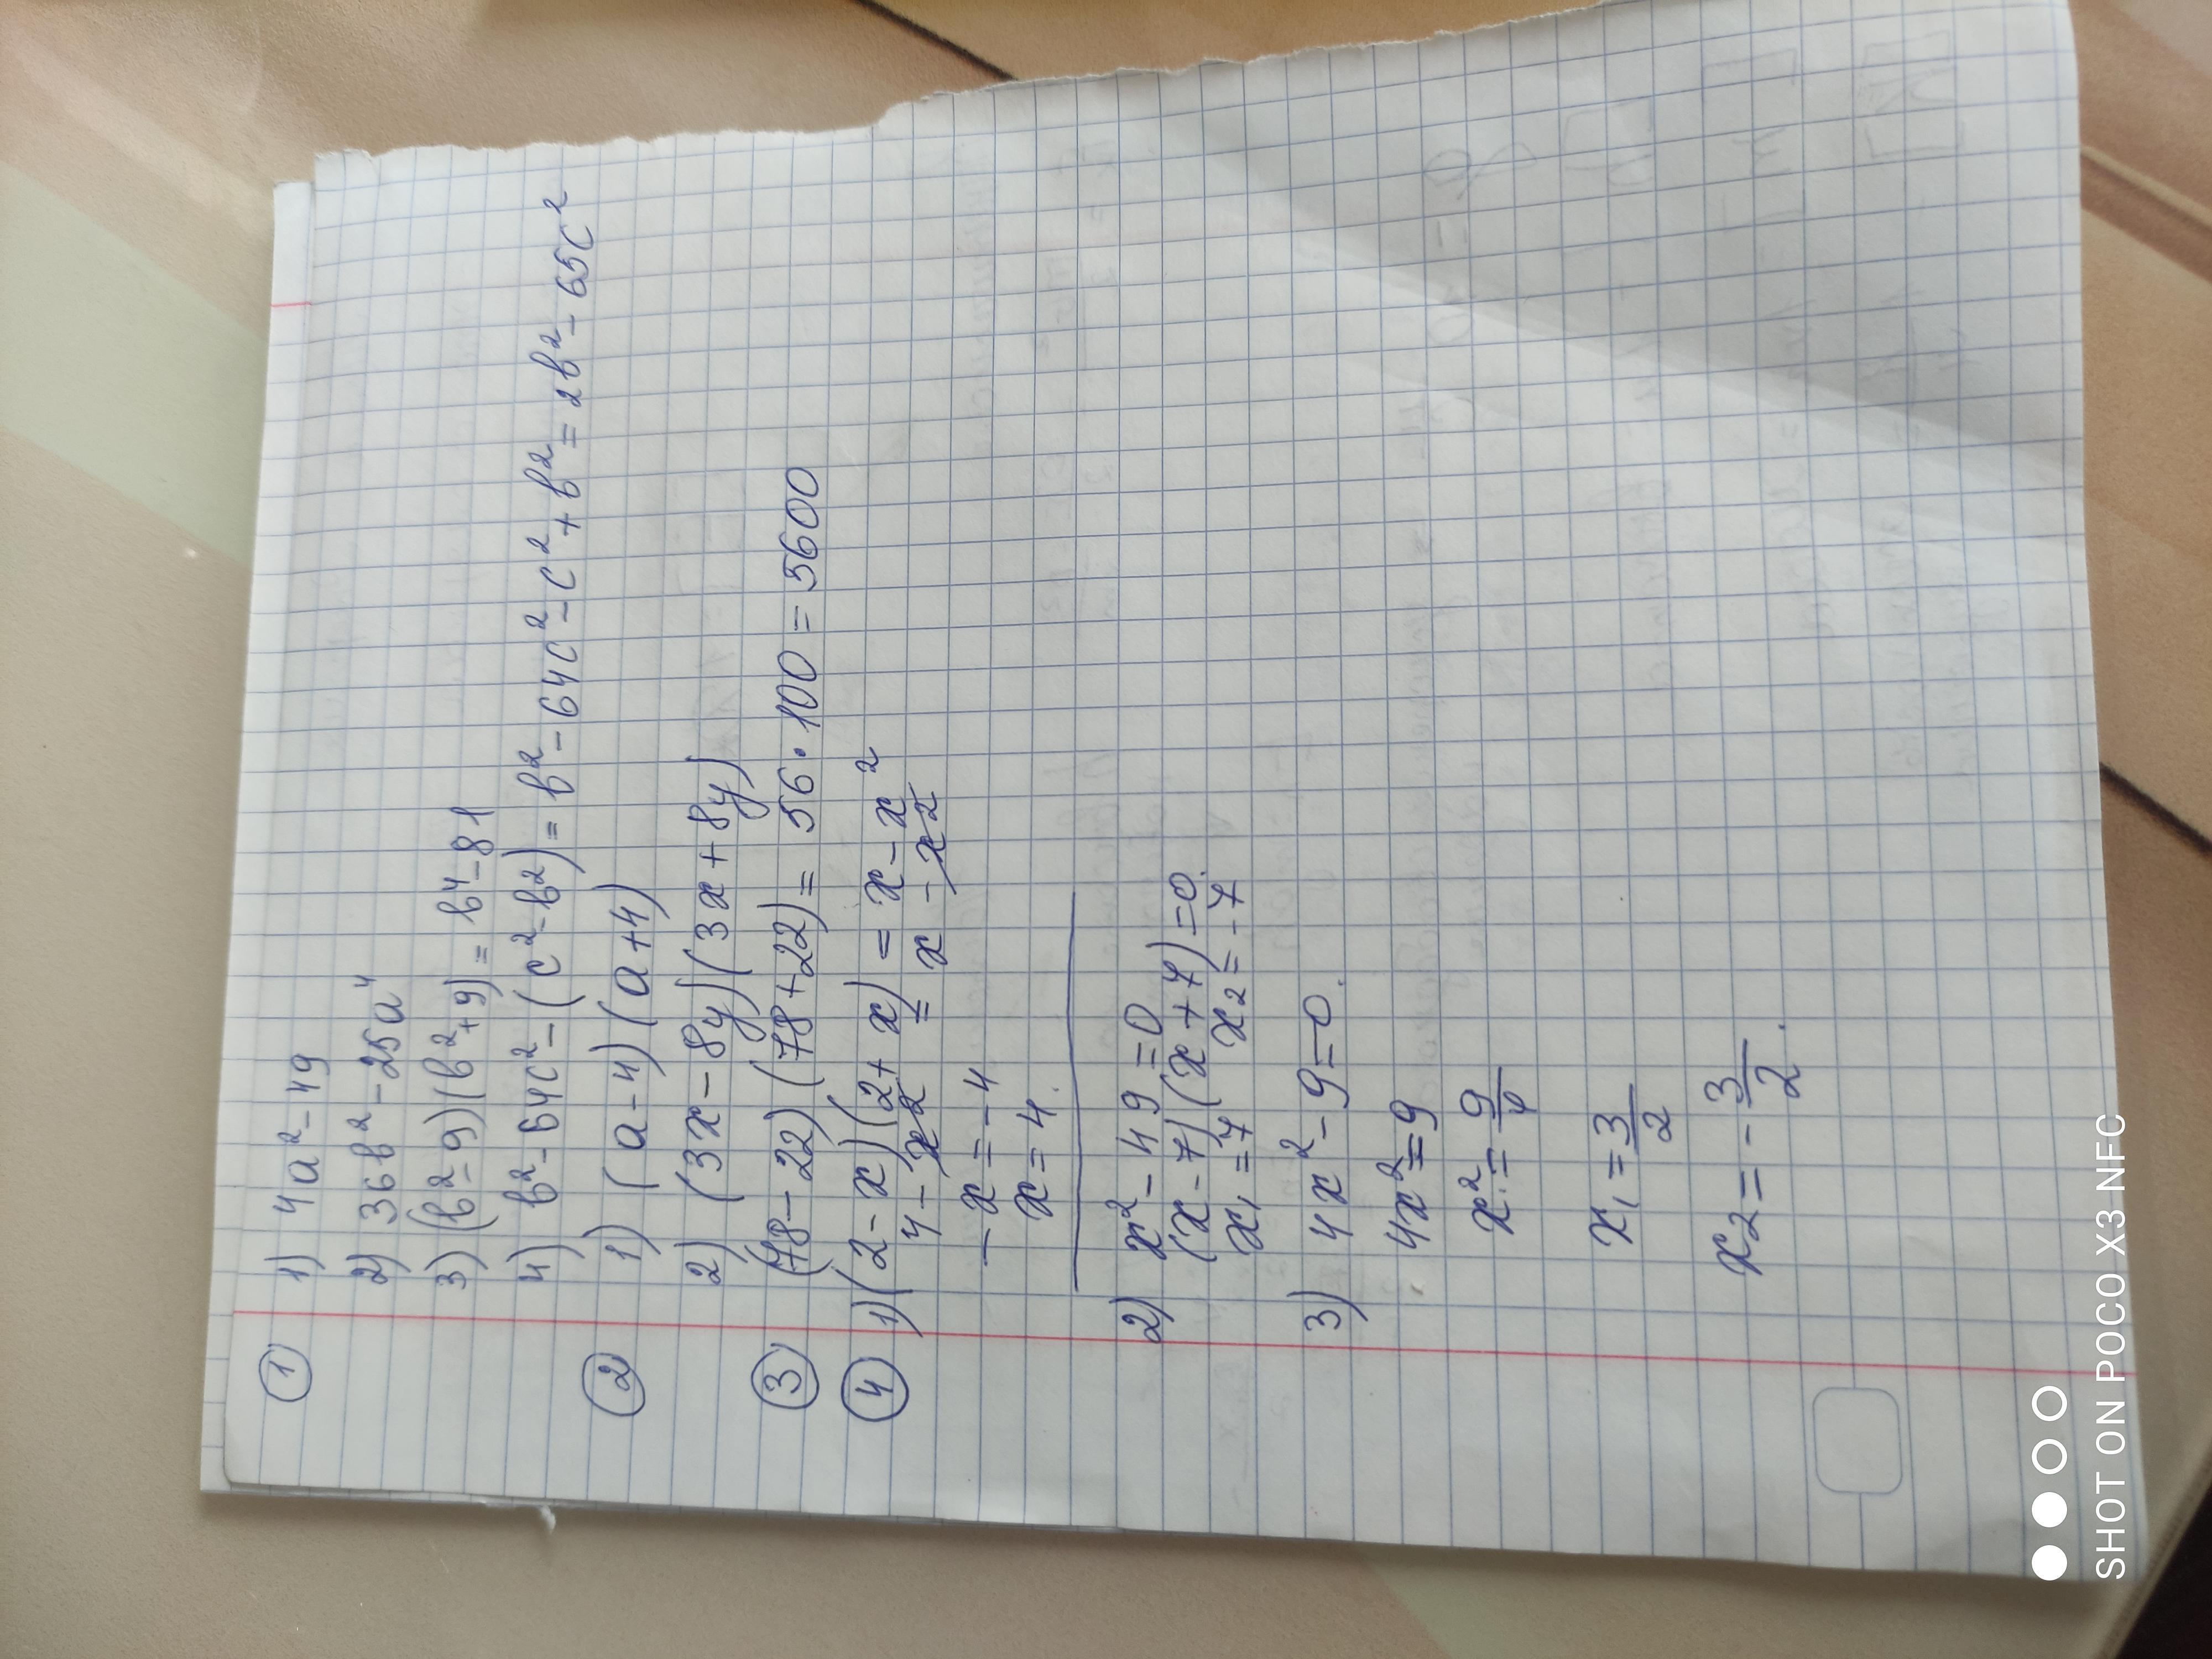 ① 1) 4a² - 49
2) 36b² - 25a⁴
3) (b² - 9)(b² + 9) = b⁴ - 81
4) b² - 64c² - (c² - b²) = b² - 64c² - c² + b² = 2b² - 65c²
② 1) (a - 4)(a + 4)
2) (3x - 8y)(3x + 8y)
③ (78 - 22)(78 + 22) = 56 · 100 = 5600
④ 1) (2 - x)(2 + x) = x - x²
4 - x² = x - x²
- x = - 4
x = 4.
2) x² - 49 = 0
(x - 7)(x + 7) = 0.
x₁ = 7 x₂ = - 7
3) 4x² - 9 = 0.
4x² = 9
x² = 9/4
x₁ = 3/2
x₂ = - 3/2.
SHOT ON POCO X3 NFC